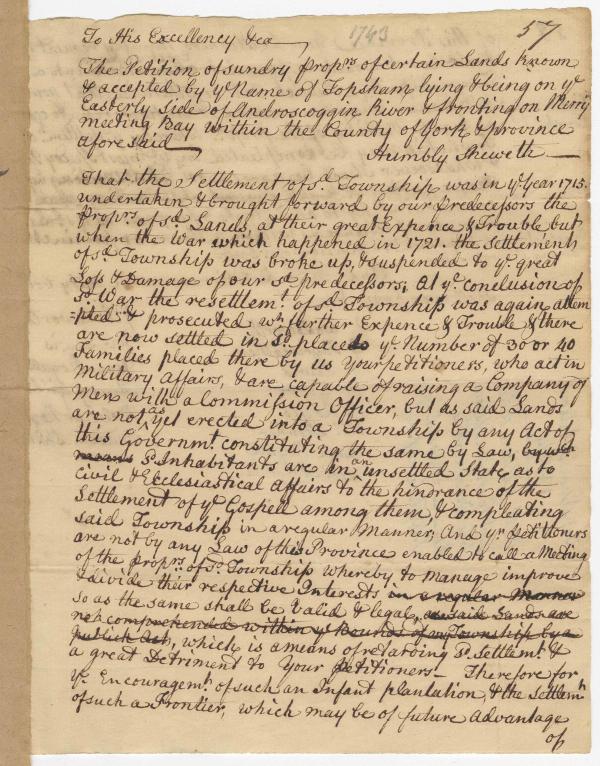 1743 57
To His Excellency &ca
The Petition of sundry Propʳˢ of certain Lands known
& accepted by yᵉ Name of Topsham lying & being on yᵉ
Easterly side of Androscoggin River & fronting on Merry
meeting Bay within the County of York & province
aforesaid
Humbly Sheweth
That the Settlement of sᵈ Township was in yᵉ Year 1715.
undertaken & brought forward by our Predecessors the
Propʳˢ of sᵈ Lands, at their great Expence & Trouble, but
when the War which happened in 1721. the settlement
of sᵈ Township was broke up, & suspended to yᵉ great
Loss & Damage of our sᵈ predecessors; At yᵉ conclusion of
sᵈ War the resettlemᵗ of sᵈ Township was again attem
=pted & prosecuted wᵗʰ further Expence & Trouble & there
are now settled in sᵈ place to yᵉ Number of 30 or 40
Families placed there by us Your petitioners, who act in
Military affairs, & are capable of raising a Company of
Men with a Commission Officer, but as said Lands
are not as yet erected into a Township by any Act of
this Governmᵗ constituting the same by Law, by wᶜʰ
means sᵈ Inhabitants are in an unsettled State, as to
Civil & Ecclesiastical affairs to the hindrance of the
Settlement of yᵉ Gospell among them, & compleating
said Township in a regular Manner; And yʳ Petitioners
are not by any Law of this Province enabled to call a Meeting
of the Propʳˢ of sᵈ Township whereby to manage improve
& divide their respective Interests in a regular Manner
so as the same shall be Valid & legal, as said Lands are
not comprehended within yᵉ Bounds of any Township by a
publick Act, which is a means of retarding sᵈ Settlemᵗ &
a great Detriment to Your Petitioners - Therefore for
yᵉ Encouragemᵗ of such an Infant plantation, & the Settlemᵗ
of such a Frontier, which may be of future advantage
of